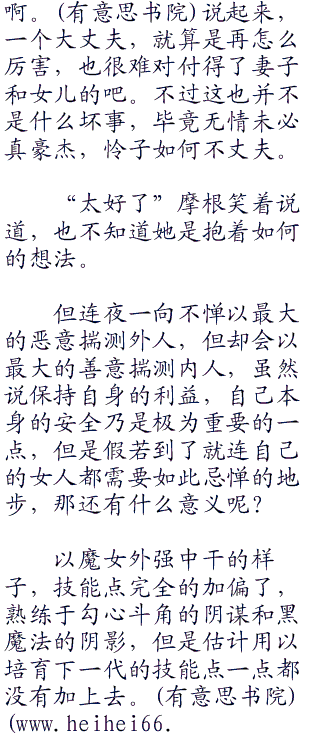 啊。(有意思书院)说起来，
一个大丈夫，就算是再怎么
厉害，也很难对付得了妻子
和女儿的吧。不过这也并不
是什么坏事，毕竟无情未必
真豪杰，怜子如何不丈夫。
“太好了”摩根笑着说
道，也不知道她是抱着如何
的想法。
但连夜一向不惮以最大
的恶意揣测外人，但却会以
最大的善意揣测内人，虽然
说保持自身的利益，自己本
身的安全乃是极为重要的一
点，但是假若到了就连自己
的女人都需要如此忌惮的地
步，那还有什么意义呢？
以魔女外强中干的样
子，技能点完全的加偏了，
熟练于勾心斗角的阴谋和黑
魔法的阴影，但是估计用以
培育下一代的技能点一点都
没有加上去。(有意思书院)
(www.heihei66.